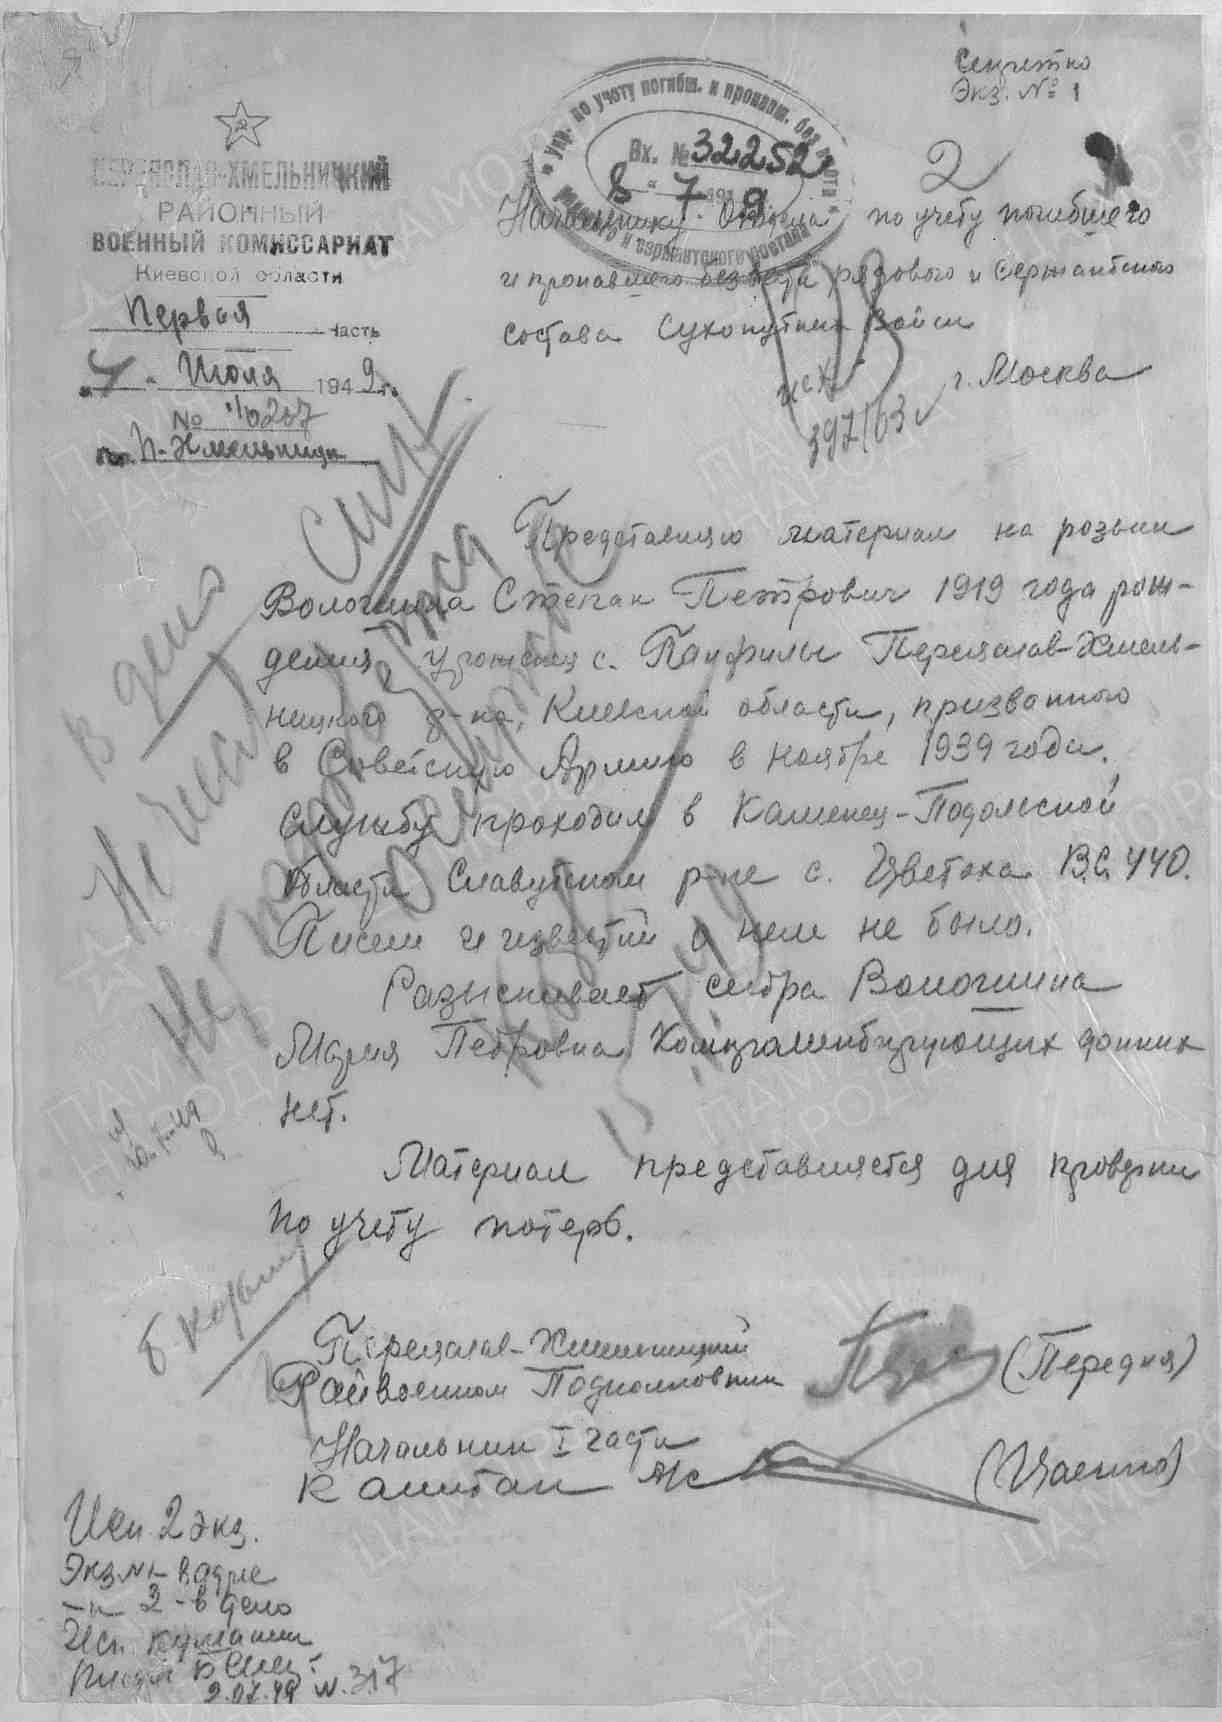 Секретно
Экз. № 1
ПЕРЕЯСЛАВ-ХМЕЛЬНИЦКИЙ
РАЙОННЫЙ
ВОЕННЫЙ КОМИССАРИАТ
Киевской области
Первая часть
"4" Июля 1949 г.
№ 10207
П-Хмельницк
Упр. по учету погибш. и пропавш. без вести
рядового и сержантского состава
Вх. № 32252
8 " 7 1949
2
Начальнику Отдела по учету погибшего
и пропавшего без вести рядового и сержантского
состава Сухопутных Войск
г. Москва
исх
397/03
Представляю материал на розыск
Волошина Степан Петрович 1919 года рож-
дения, уроженец с. Панфилы Переяслав-Хмель-
ницкого р-на, Киевской области, призванного
в Советскую Армию в ноябре 1939 года.
Службу проходил в Каменец-Подольской
области Славутском р-не с. Цветоха В.С. 440.
Писем и известий о нем не было.
Разыскивает сестра Волошина
Мария Петровна Компрометирующих данных
нет.
Материал представляется для проверки
по учету потерь.
Переяслав-Хмельницкий
Райвоенком Подполковник (Передня)
Начальник I части
Капитан
В дело
Не числ
20-7-49
Исп. 2 экз.
Экз №1- в адрес
-"- 2 - в дело
Исп.
2.07.49 N. 317
ПАМЯТЬ
НАРОДА
ЦАМО РФ